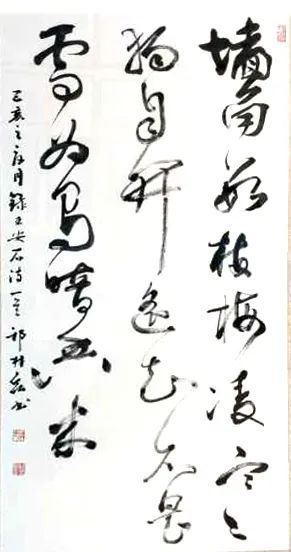 墻角數枝梅凌寒
独自开遥知不是
雪为有暗香来
己亥之月錄王安石诗一首书